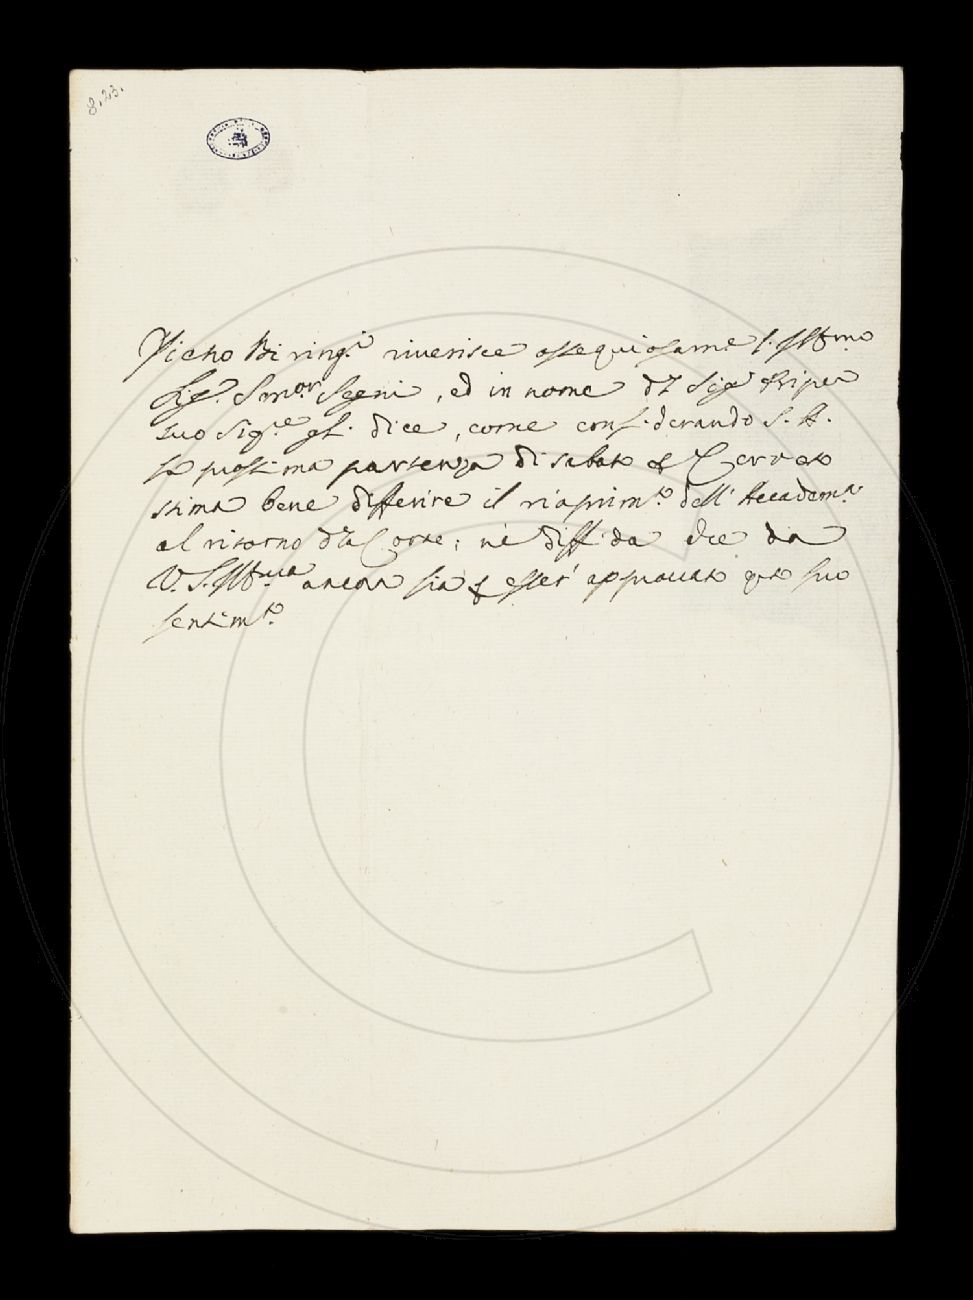 8.23.
Pietro Biringi riverisce ossequiosame l'Illmo
Sigr. Senr. Segni, ed in nome
suo Sigre gl. dice, come considerando S. A.
la prossima partenza di sabato Cerreto
stima bene differire il riaprimto dell' Accadema
al ritorno dla Corte; nè diffida che da
V. S. Illma ancora sia p esser' approvato qto suo
sentimto.